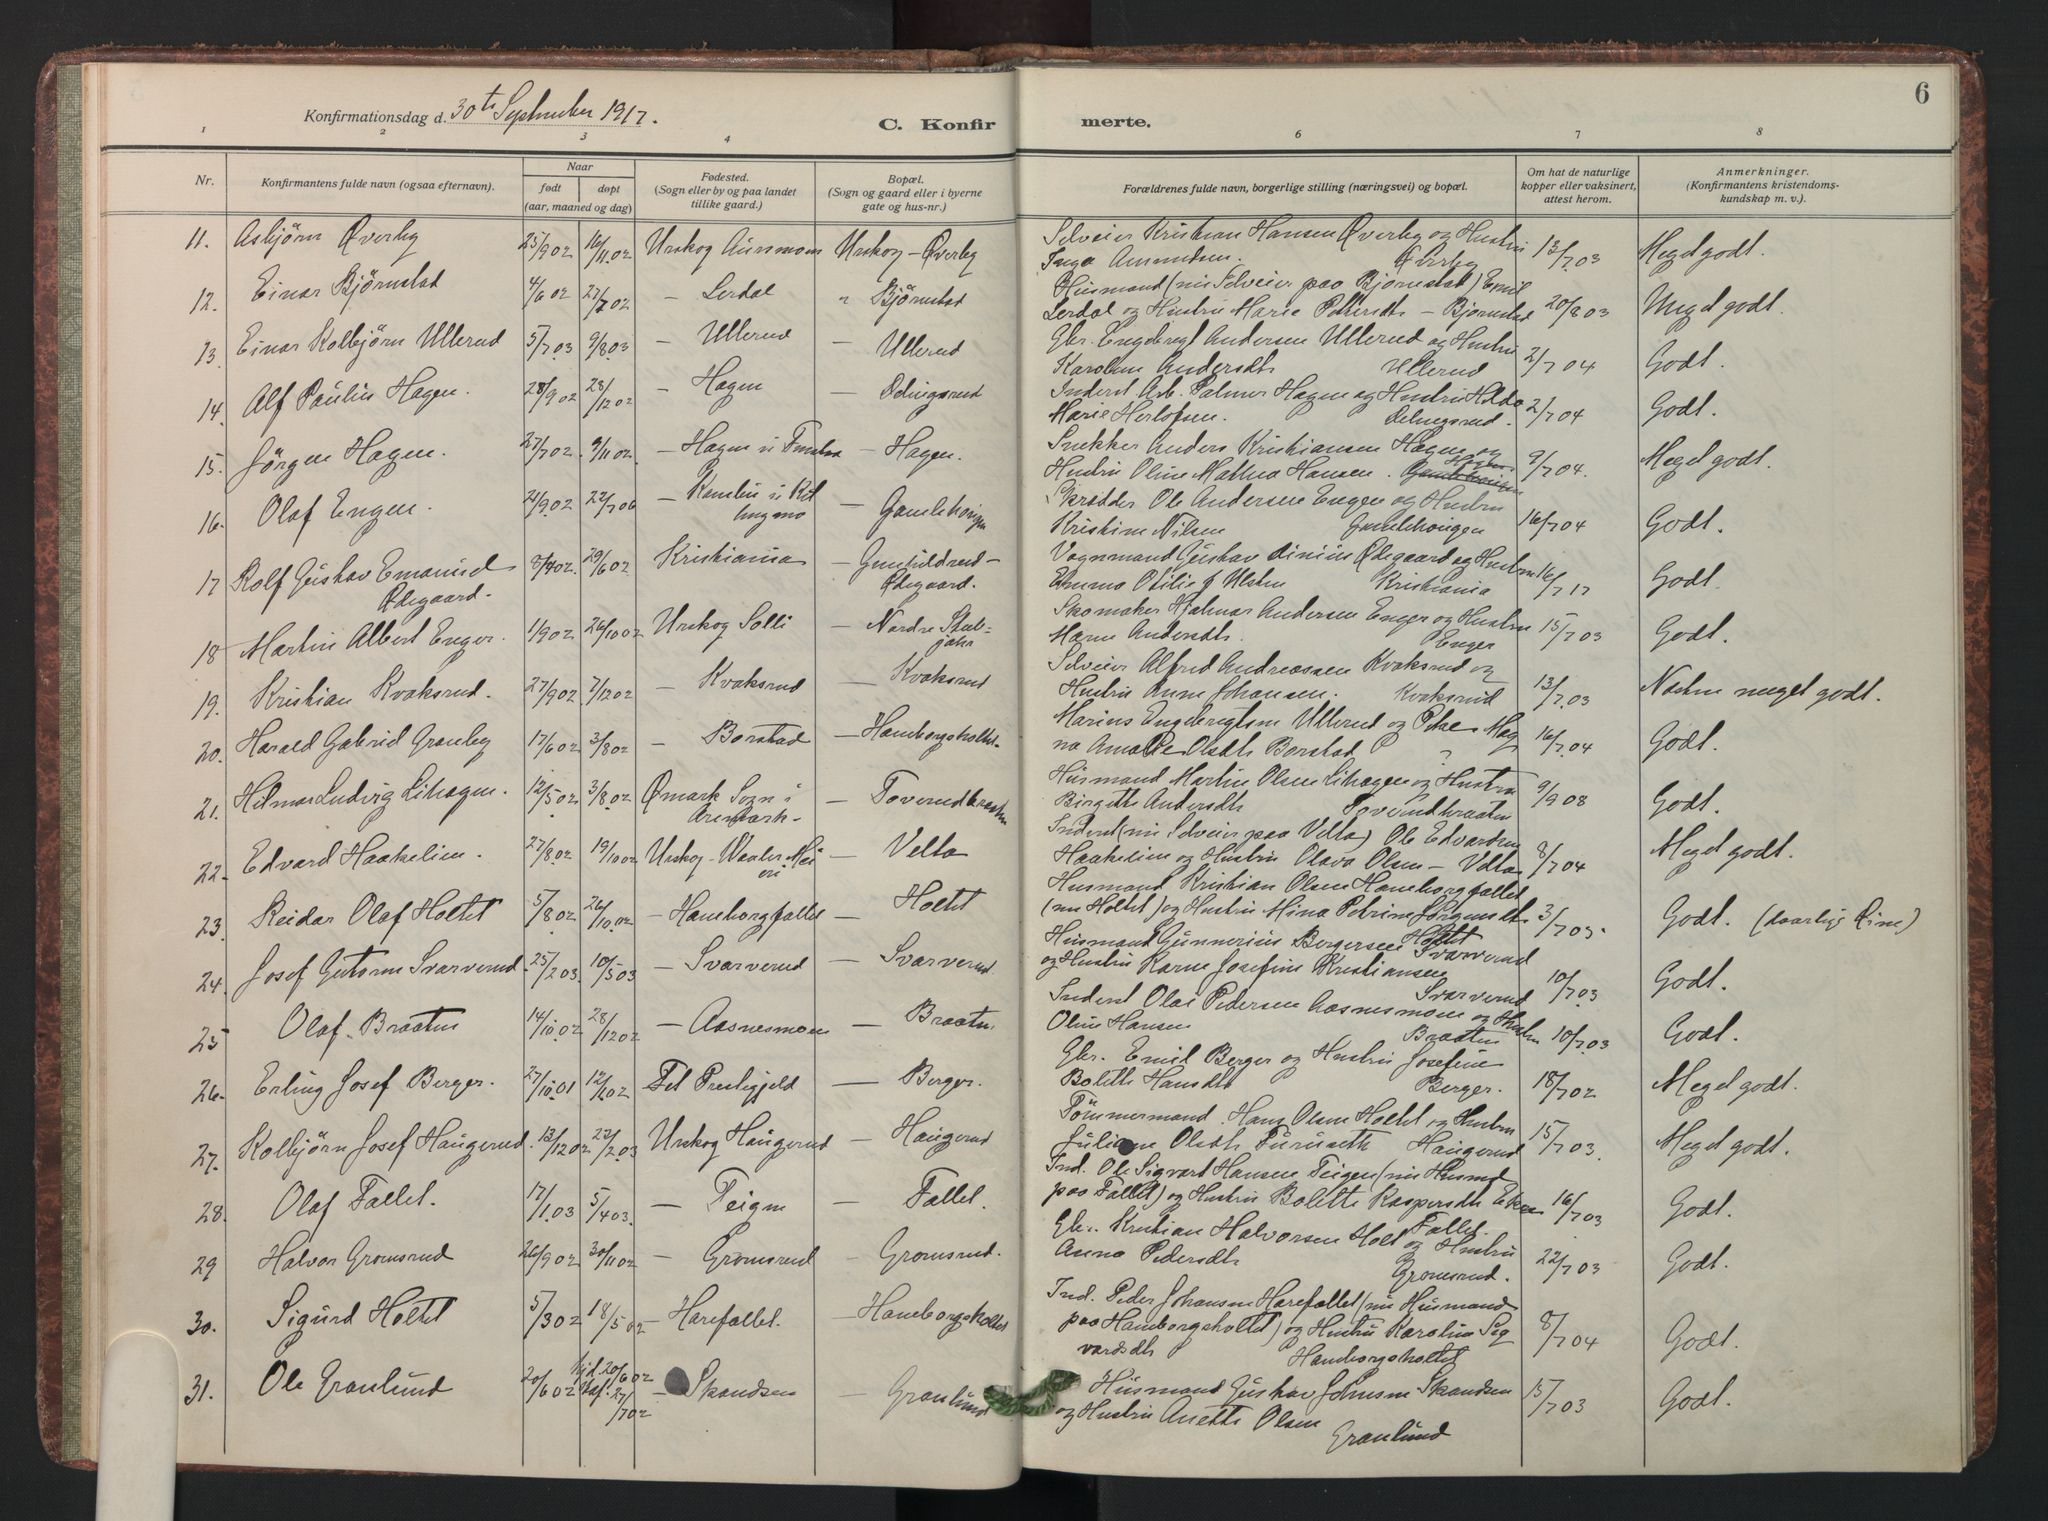 6
Konfirmationsdag d. 30te September 1917.
C. Konfirmerte.
1 2 3 4 6 7 8
Nr. Konfirmantens fulde navn (ogsaa efternavn). Naar født døpt (aar, maaned og dag) Fødested. (Sogn eller by og paa landet tillike gaard.) Bopæl. (Sogn og gaard eller i byerne gate og hus-nr.) Forældrenes fulde navn, borgerlige stilling (næringsvei) og bopæl. Om hat de naturlige kopper eller vaksinert, attest herom. Anmerkninger. (Konfirmantens kristendoms-kundskap m. v.).
11. Asbjörn Øverby 25/9 02 16/11.02 Urskog Aursmoen Urskog - Øverby Selveier Kristian Hansen Øverby og Hustru Inga Amundsen. Øverby 13/7.03 Meget godt.
12. Einar Björnstad 4/6 02 27/7 02 - Lerdal " Björnstad Husmand (nu Selveier paa Bjørnstad) Emil Lerdal og Hustru Marie Pettersdtr - Bjørnstad 20/8 03 Meget godt.
13. Einar Kolbjörn Ullerud 5/7.03 9/8.03 - Ullerud - Ullerud Gbr. Engebregt Andersen Ullerud og Hustru Karoline Andersdtr Ullerud 2/7 04 Godt.
14. Alf Paulin Hagen. 28/9 02 28/12 02 - Hagen - Ødingsrud Inderst Arb. Palmer Hagen og Hustru Hilda Marie Herlofsen. 2/7 04 Godt.
15. Jörgen Hagen. 27/7 02 9/11 02. - Hagen - Hagen. Snekker Anders Kristiansen Hagen og Hustru Oline Mathea Hansen. Hagen 9/7 04. Meget godt.
16. Olaf Engen. 21/9.02 22/7 06 - Gamlehougen Skrædder Ole Andersen Engen og Hustru Kristine Nilsen Gamlehougen 16/7 04 Godt.
17 Rolf Gustav Emanuel Ødegaard. 29/6 02 Kristiania - Gunhildrud - Ødegaard. Vognmand Gustav Ødegaard og Hustru Emma Otilie Kristiania 16/7 17 Godt.
18 Martin Albert Enger. 1/9 02 26/10 02 Urskog Solli - Nordre Skomaker Hjalmar Andersen Enger og Hustru Maren Andersdtr. Enger 15/7 03 Godt.
19. Kristian Kvaksrud. 27/9 02 7/12 02 - Kvaksrud - Kvaksrud Selveier Alfred Andreassen Kvaksrud og Hustru Anne Johansen. Kvaksrud 13/7.03 Næsten meget godt.
20. Harald Gabriel Granby 17/6 02 3/8 02 - Borstad - Haneborgsholtet. Marius Engebregtsen Ullerud og Pike Magna Amalie Olsdtr Borstad ? 16/7.04 Godt.
21. Hilmar Ludvig Lihagen. 12/5 02 3/8.02 Ømark Sogn i Aremark - - Toverudbraaten Husmand Martin Olsen Lihagen og Hustru Birgitte Andersdtr Toverudbraaten 9/9 08 Godt.
22. Edvard Haakelien. 27/8 02 19/10 02 Urskog - Waaler Meieri - Velta Inderst (nu Selveier paa Velta) Ole Edvardsen Haakelien og Hustru Olava Olsen - Velta 8/7 04 Meget godt.
23. Reidar Olaf Holtet 5/8 02 26/10.02 - Haneborgfallet - Holtet Husmand Kristian Olsen Haneborgfallet (nu Holtet) og Hustru Mina Petrine Jørgensdtr Holtet 3/7 03. Godt. (daarlig Evne)
24. Josef Gutorm Svarverud 25/2 03. 10/5 03 - Svarverud - Svarverud. Husmand Gunnerius Bergersen Svarverud og Hustru Karen Josefine Kristiansen Svarverud 10/7.03 Godt.
25 Olaf Braaten 14/10.02 28/12 02 - Aasnesmoen - Braaten. Inderst Olai Pedersen Aasnesmoen og Hustru Oline Hansen Braaten 10/7.03 Godt.
26. Erling Josef Berger. 27/10.01 Fet Prestegjeld - Berger. Gbr. Emil Berger og Hustru Josefine Bolette Hansdtr Berger. 18/7 02 Meget godt.
27. Kolbjörn Josef Haugerud. 13/12 02 22/2.03 Urskog Haugerud - Haugerud Tömmermand Hans Olsen Holtet og Hustru Juliane Olsdtr Furuseth Haugerud 15/7 03. Meget godt.
28. Olaf Fallet. 17/1.03 5/4 03. - Teigen - Fallet. Ind. Ole Sigvart Hansen Teigen (nu Husmd paa Fallet) og Hustru Bolette Kaspersdtr Fallet. 16/7 03 Godt.
29 Halvor Gromsrud 26/9 02 30/11 02 - Gromsrud - Gromsrud. Gbr. Kristian Halvorsen Holt og Hustru Anna Pedersdtr Gromsrud. 22/7 03 Godt.
30. Sigurd Holtet 5/3 02 18/5 02 - Harefallet. - Haneborgsholtet Ind. Peder Johansen Harefallet (nu Husmand paa Haneborgsholtet) og Hustru Karoline Sigvardsdtr Haneborgsholtet 8/7 04 Godt.
31. Ole Granlund 20/6 02 Hjd. 20/6 02 Stadf. 27/7 02 - Skandsen - Granlund Husmand Gustav Johnsen Skandsen og Hustru Anette Olsen Granlund 15/7 03 Godt.